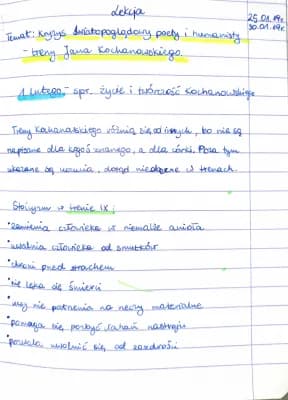 Lekcja
25.01.19r.
30.01.19r.
Temat: Kryzys światopoglądowy poety i humanisty
- treny Jana Kochanowskiego.
1 lutego - spr. życie i twórczość Kochanowskiego
Treny Kochanowskiego różnią się od innych, bo nie są
napisane dla kogoś znanego, a dla córki. Poza tym
ukazane są uczucia, dotąd nieobecne w trenach.
Stoicyzm w trenie IX:
• zamienia człowieka w niemalże anioła
• uwalnia człowieka od smutków
• chroni przed strachem
• nie lęka się śmierci
• nie patrzenia na rzeczy materialne
• pomaga się pozbyć wahań nastroju
• pozwala uwolnić się od zazdrości